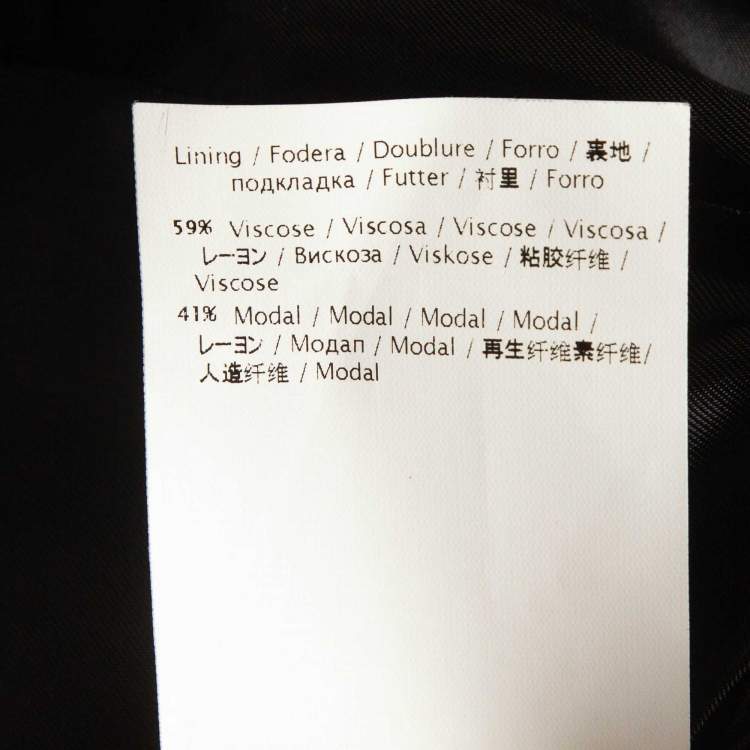 Lining / Fodera / Doublure / Forro / 裏地 /
подкладка / Futter / 衬里 / Forro
59% Viscose / Viscosa / Viscose / Viscosa /
レーヨン / Вискоза / Viskose / 粘胶纤维 /
Viscose
41% Modal / Modal / Modal / Modal /
レーヨン / Модап / Modal / 再生纤维素纤维/
人造纤维 / Modal